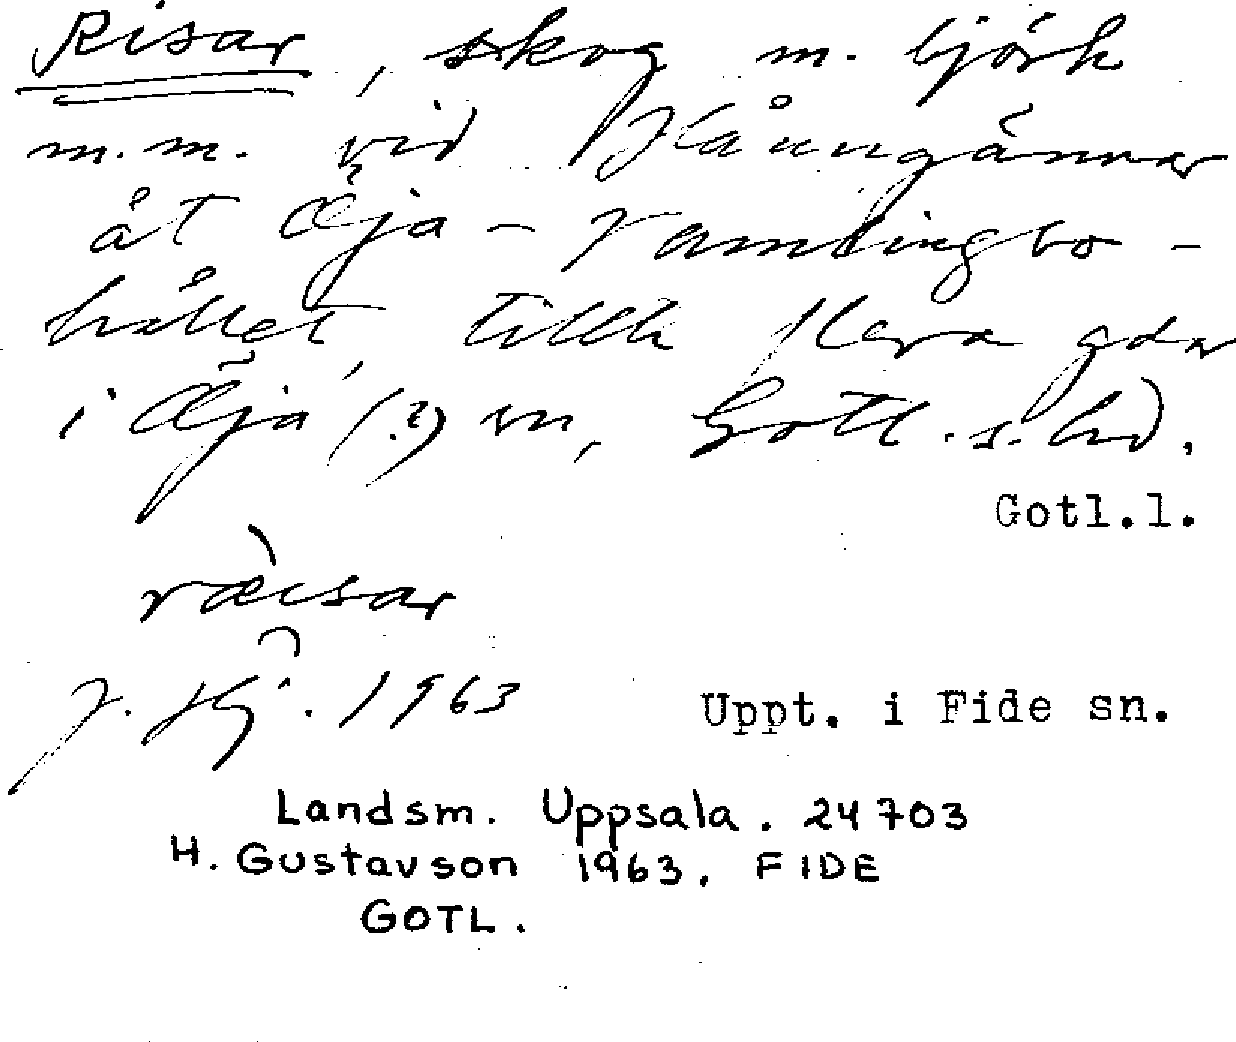 Risar, skog m. björk
m.m. vid
åt Öja - Vamlingbo -
hållet, tillh flera gdar
i Öja (?) sn, Gotl. s. hd.
Gotl.l.
ræisar
1963
Uppt. i Fide sn.
Landsm. Uppsala. 24703
H. Gustavson 1963. FIDE
GOTL.